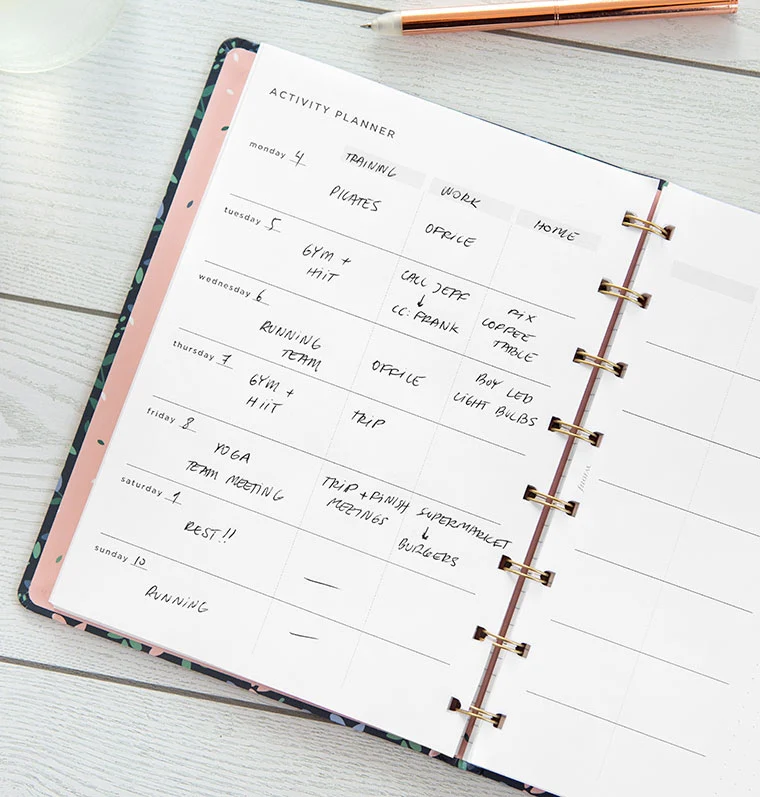 ACTIVITY PLANNER
TRAINING
WORK
HOME
monday 4
PILATES
OFFICE
tuesday 5
GYM +
HiiT
CALL JEFF
↓
CC: FRANK
FiX
COFFEE
TABLE
wednesday 6
RUNNING
TEAM
OFFICE
BUY LED
LIGHT BULBS
thursday 7
GYM +
HiiT
TRIP
friday 8
YOGA
TEAM MEETING
TRIP + FINISH
MEETINGS
SUPERMARKET
↓
BURGERS
saturday 9
REST!!
—
sunday 10
RUNNING
—